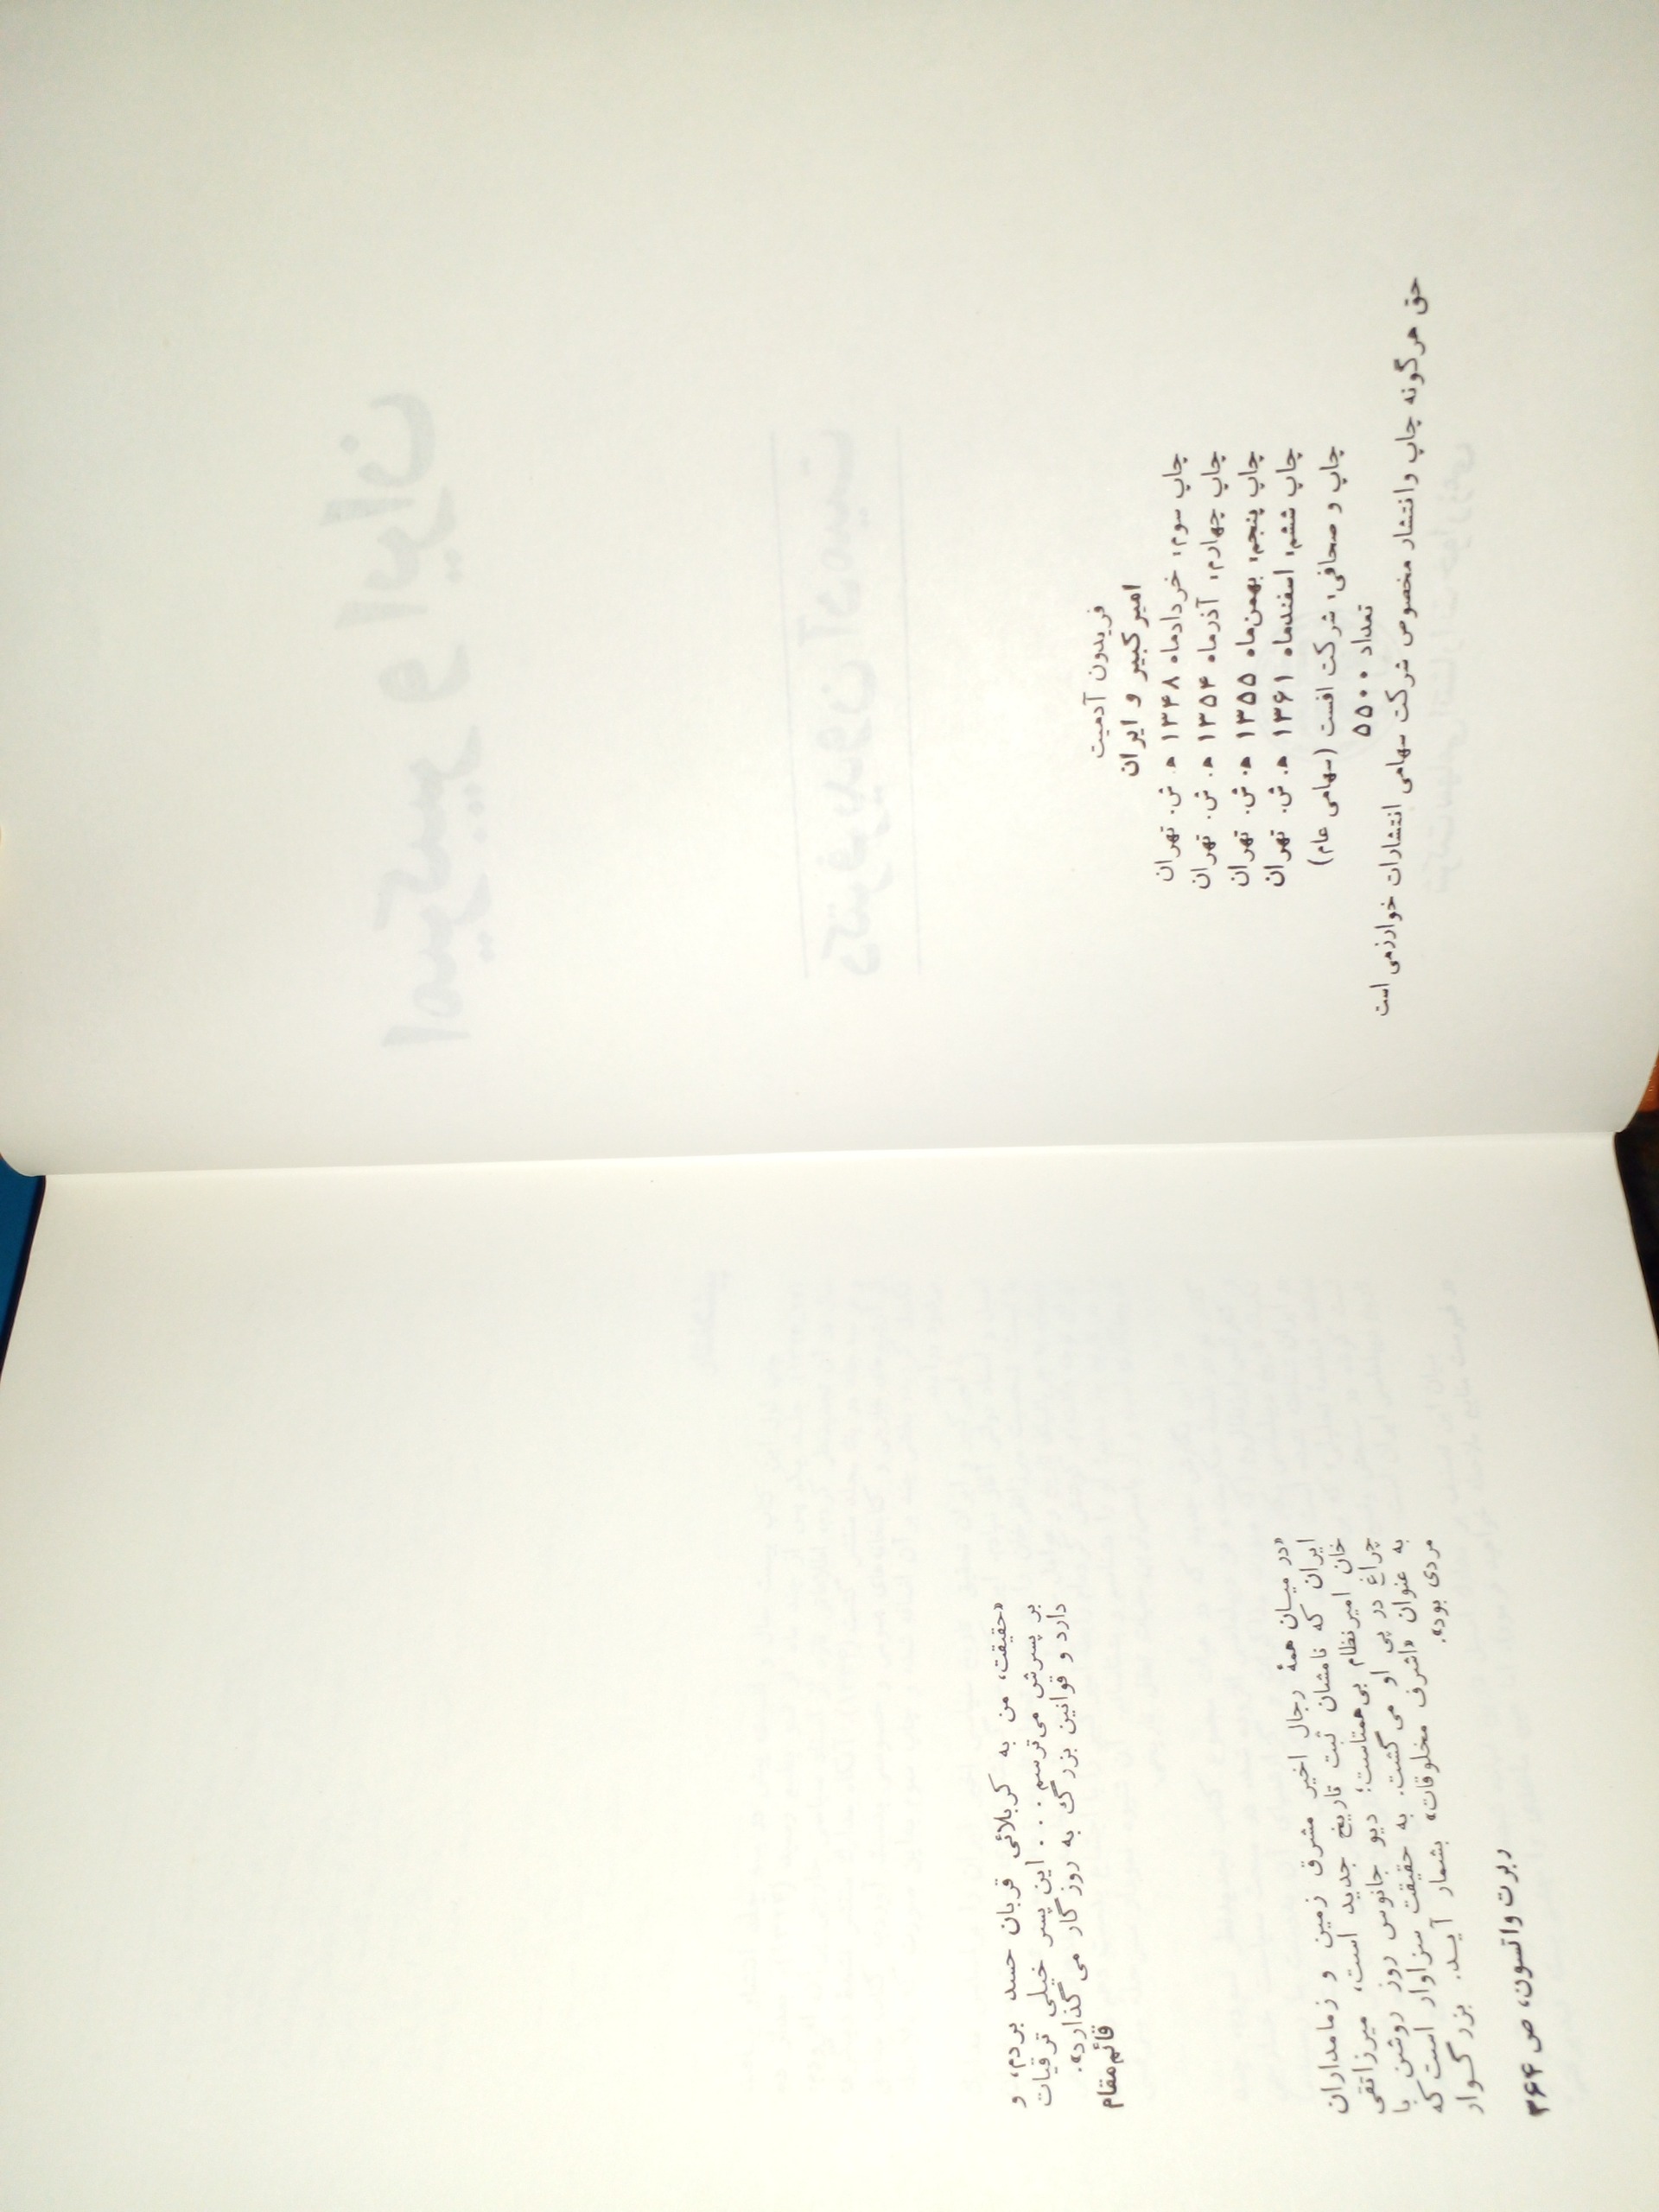 فریدون آدمیت
امیرکبیر و ایران
چاپ سوم: خردادماه ۱۳۴۸ ه. ش. تهران
چاپ چهارم: آذرماه ۱۳۵۴ ه. ش. تهران
چاپ پنجم: بهمن‌ماه ۱۳۵۵ ه. ش. تهران
چاپ ششم: اسفندماه ۱۳۶۱ ه. ش. تهران
چاپ و صحافی: شرکت افست (سهامی عام)
تعداد ۵۵۰۰
حق هرگونه چاپ و انتشار مخصوص شرکت سهامی انتشارات خوارزمی است
«حقیقت، من به کربلائی قربان حسد بردم، و
بر پسرش می‌ترسم... این پسر خیلی ترقیات
دارد و قوانین بزرگ به روزگار می‌گذارد».
قائم‌مقام
«در میان همهٔ رجال اخیر مشرق زمین و زمامداران
ایران که نامشان ثبت تاریخ جدید است، میرزاتقی
خان امیرنظام بی‌همتاست؛ دیو جانوس روز روشن با
چراغ در پی او می‌گشت. به حقیقت سزاوار است که
به عنوان «اشرف مخلوقات» بشمار آید. بزرگوار
مردی بود».
ربرت واتسون، ص ۲۶۴